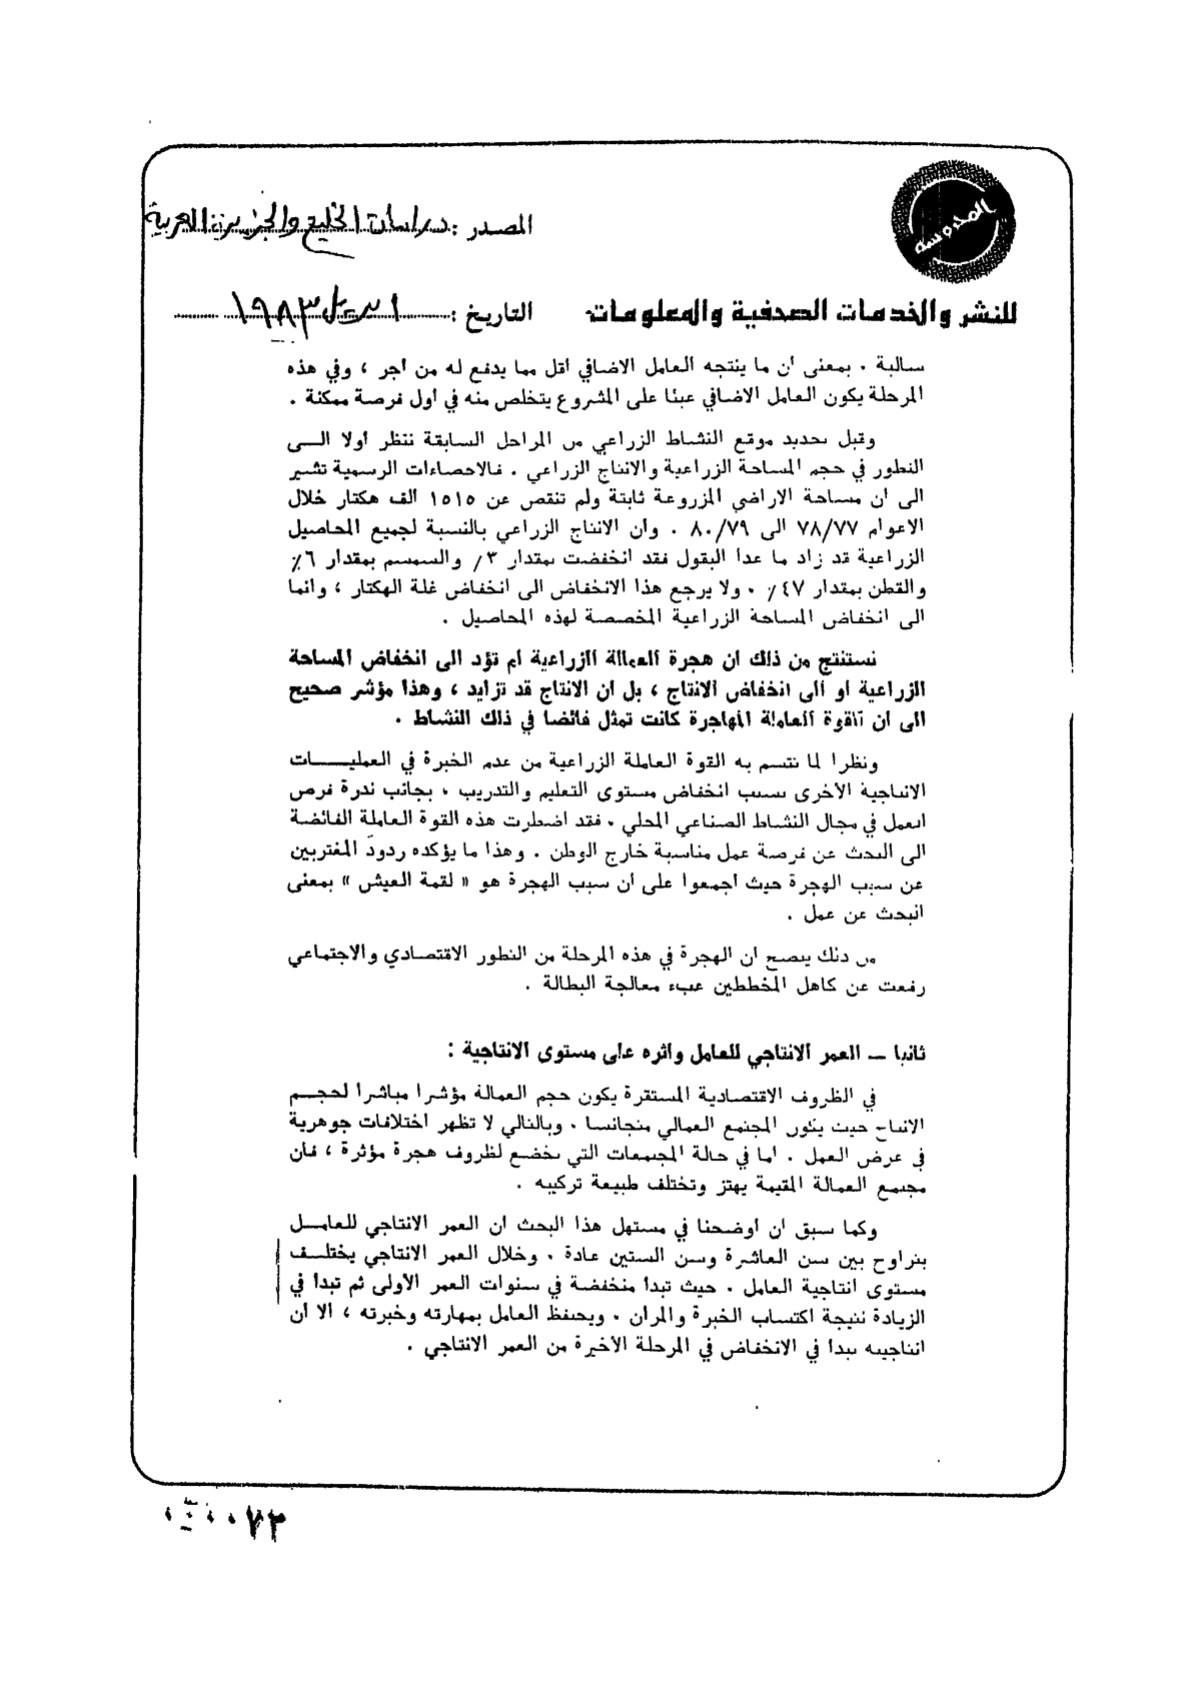 المحروسة
المصدر : دراسات الخليج والجزيرة العربية
للنشر والخدمات الصحفية والمعلومات
التاريخ : ابريل ١٩٨٣
سالبة . بمعنى ان ما ينتجه العامل الاضافي اقل مما يدفع له من اجر ، وفي هذه
المرحلة يكون العامل الاضافي عبئا على المشروع يتخلص منه في أول فرصة ممكنة .
وقبل تحديد موقع النشاط الزراعي من المراحل السابقة ننظر أولا الـــى
التطور في حجم المساحة الزراعية والانتاج الزراعي . فالاحصاءات الرسمية تشير
الى ان مساحة الاراضي المزروعة ثابتة ولم تنقص عن ١٥١٥ الف هكتار خلال
الاعوام ٧٨/٧٧ الى ٨٠/٧٩ . وان الانتاج الزراعي بالنسبة لجميع المحاصيل
الزراعية قد زاد ما عدا البقول فقد انخفضت بمقدار ٣٪ والسمسم بمقدار ٦٪
والقطن بمقدار ٤٧٪ . ولا يرجع هذا الانخفاض الى انخفاض غلة الهكتار ، وانما
الى انخفاض المساحة الزراعية المخصصة لهذه المحاصيل .
نستنتج من ذلك ان هجرة العمالة الزراعية لم تؤد الى انخفاض المساحة
الزراعية او الى انخفاض الانتاج ، بل ان الانتاج قد تزايد ، وهذا مؤشر صحيح
الى ان القوة العاملة المهاجرة كانت تمثل فائضا في ذلك النشاط .
ونظرا لما تتسم به القوة العاملة الزراعية من عدم الخبرة في العمليـــات
الانتاجية الأخرى بسبب انخفاض مستوى التعليم والتدريب ، بجانب ندرة فرص
العمل في مجال النشاط الصناعي المحلي . فقد اضطرت هذه القوة العاملة الفائضة
الى البحث عن فرصة عمل مناسبة خارج الوطن . وهذا ما يؤكده ردود المغتربين
عن سبب الهجرة حيث اجمعوا على ان سبب الهجرة هو « لقمة العيش » بمعنى
البحث عن عمل .
من ذلك يتضح ان الهجرة في هذه المرحلة من التطور الاقتصادي والاجتماعي
رفعت عن كاهل المخططين عبء معالجة البطالة .
ثانيا – العمر الانتاجي للعامل واثره على مستوى الانتاجية :
في الظروف الاقتصادية المستقرة يكون حجم العمالة مؤشرا مباشرا لحجـــم
الانتاج حيث يكون المجتمع العمالي متجانسا . وبالتالي لا تظهر اختلافات جوهرية
في عرض العمل . اما في حالة المجتمعات التي تخضع لظروف هجرة مؤثرة ، فان
مجتمع العمالة المقيمة يهتز وتختلف طبيعة تركيبه .
وكما سبق ان أوضحنا في مستهل هذا البحث ان العمر الانتاجي للعامـــل
يتراوح بين سن العاشرة وسن الستين عادة . وخلال العمر الانتاجي يختلـــف
مستوى انتاجية العامل . حيث تبدا منخفضة في سنوات العمر الاولى ثم تبدأ في
الزيادة نتيجة اكتساب الخبرة والمران . ويحتفظ العامل بمهارته وخبرته ، الا ان
انتاجيته تبدأ في الانخفاض في المرحلة الأخيرة من العمر الانتاجي .